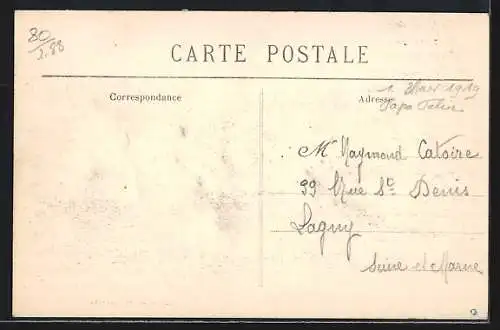 80/
2.88
CARTE POSTALE
Correspondance
Adresse
1 1919
Papa
Mr Raymond Catoire
99 Rue St Denis
Lagny
Seine et Marne